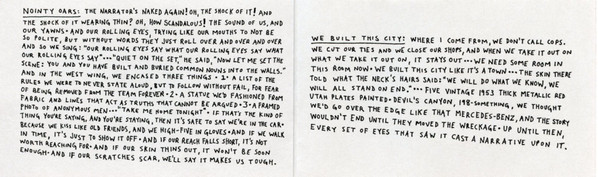 NOINTY OARS: THE NARRATOR'S NAKED AGAIN! OH, THE SHOCK OF IT! AND
THE SHOCK OF IT WEARING THIN? OH, HOW SCANDALOUS! THE SOUND OF US, AND
OUR YAWNS • AND OUR ROLLING EYES, TRYING LIKE OUR MOUTHS TO NOT BE
SO POLITE, BUT WITHOUT WORDS THEY JUST ROLL OVER AND OVER AND OVER
AND SO WE SING: "OUR ROLLING EYES SAY WHAT OUR ROLLING EYES SAY WHAT
OUR ROLLING EYES SAY" ••• "QUIET ON THE SET," HE SAID, "NOW LET ME SET THE
SCENE: YOU AND YOU HAVE BUILT AND BURIED COMMON NOUNS INTO THE WALLS."
AND IN THE WEST WING, WE ENCASED THREE THINGS • 1 • A LIST OF THE
RULES WE WERE TO NEVER STATE ALOUD, BUT TO FOLLOW WITHOUT FAIL, FOR FEAR
OF BEING REMOVED FROM THE TEAM FOREVER • 2 • A STATUE WE'D FASHIONED FROM
FABRIC AND LINES THAT ACT AS TRUTHS THAT CANNOT BE ARGUED • 3 • A FRAMED
PHOTO OF ANONYMOUS MEN ••• "TAKE ME HOME TONIGHT" • IF THAT'S THE KIND OF
THING YOU'RE SAYING, AND YOU'RE STAYING, THEN IT'S SAFE TO SAY WE'RE IN THE CAR •
BECAUSE WE KISS LIKE OLD FRIENDS, AND WE HIGH-FIVE IN GLOVES • AND IF WE WALK
IN TIME, IT'S JUST TO SHOW IT OFF • AND IF OUR REACH FALLS SHORT, IT'S NOT
WORTH REACHING FOR • AND IF OUR SKIN THINS OUT, IT WON'T BE SOON
ENOUGH • AND IF OUR SCRATCHES SCAR, WE'LL SAY IT MAKES US TOUGH.
WE BUILT THIS CITY: WHERE I COME FROM, WE DON'T CALL COPS.
WE CUT OUR TIES AND WE CLOSE OUR SHOPS, AND WHEN WE TAKE IT OUT ON
WHAT WE TAKE IT OUT ON, IT STAYS OUT ••• WE NEED SOME ROOM IN
THIS ROOM NOW • WE BUILT THIS CITY LIKE IT'S A TOWN ••• THE SKIN THERE
TOLD WHAT THE NECK'S HAIRS SAID: "WE WILL DO WHAT WE KNOW, WE
WILL ALL STAND ON END." ••• FIVE VINTAGE 1953 THICK METALLIC RED
UTAH PLATES PAINTED • DEVIL'S CANYON, 198-SOMETHING, WE THOUGHT
WE'D GO OVER THE EDGE LIKE THAT MERCEDES-BENZ, AND THE STORY
WOULDN'T END UNTIL THEY MOVED THE WRECKAGE • UP UNTIL THEN,
EVERY SET OF EYES THAT SAW IT CAST A NARRATIVE UPON IT.